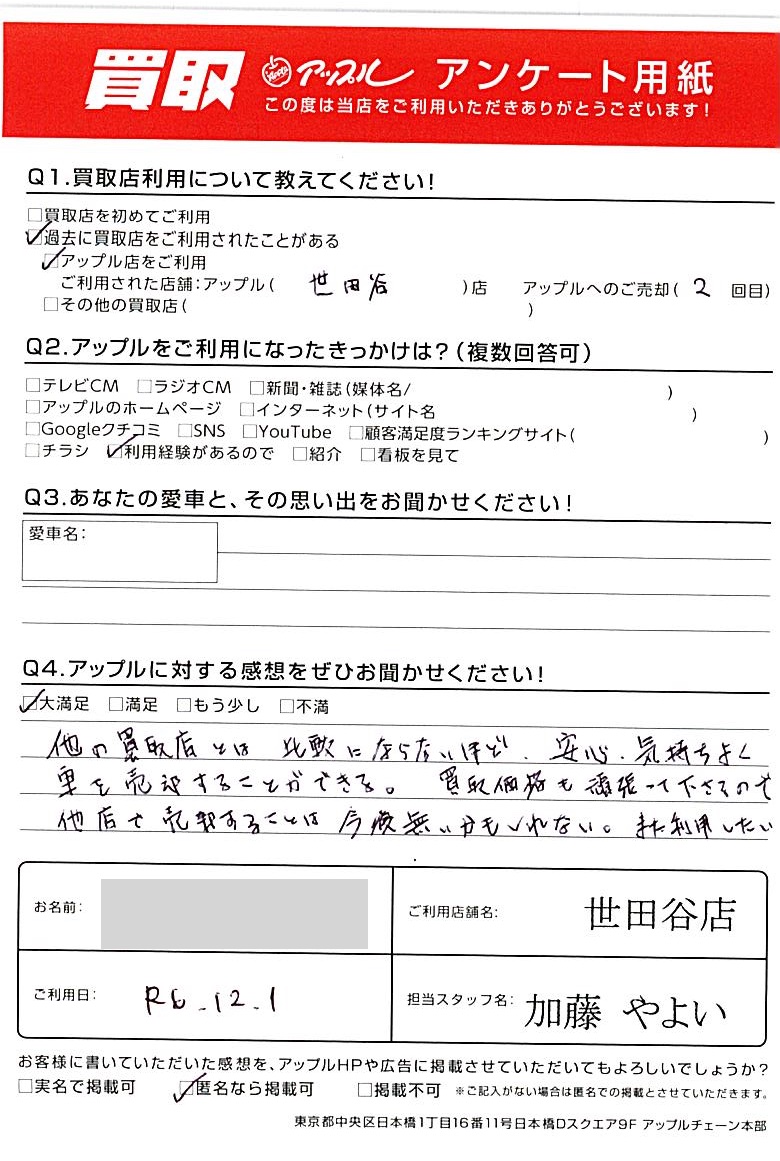 買取 アップル アンケート用紙
この度は当店をご利用いただきありがとうございます!
Q1.買取店利用について教えてください!
□買取店を初めてご利用
☑過去に買取店をご利用されたことがある
☑アップル店をご利用
ご利用された店舗:アップル( 世田谷 )店 アップルへのご売却( 2 回目)
□その他の買取店( )
Q2.アップルをご利用になったきっかけは?(複数回答可)
□テレビCM □ラジオCM □新聞・雑誌(媒体名/ )
□アップルのホームページ □インターネット(サイト名 )
□Googleクチコミ □SNS □YouTube □顧客満足度ランキングサイト( )
□チラシ ☑利用経験があるので □紹介 □看板を見て
Q3.あなたの愛車と、その思い出をお聞かせください!
愛車名:
Q4.アップルに対する感想をぜひお聞かせください!
☑大満足 □満足 □もう少し □不満
他の買取店とは比較にならないほど、安心、気持ちよく
車を売却することができる。買取価格も頑張って下さるので
他店で売却することは今後無いかもしれない。また利用したい
お名前:
ご利用店舗名: 世田谷店
ご利用日: R6.12.1
担当スタッフ名: 加藤 やよい
お客様に書いていただいた感想を、アップルHPや広告に掲載させていただいてもよろしいでしょうか?
□実名で掲載可 ☑匿名なら掲載可 □掲載不可 ※ご記入がない場合は匿名での掲載とさせていただきます。
東京都中央区日本橋1丁目16番11号日本橋Dスクエア9F アップルチェーン本部